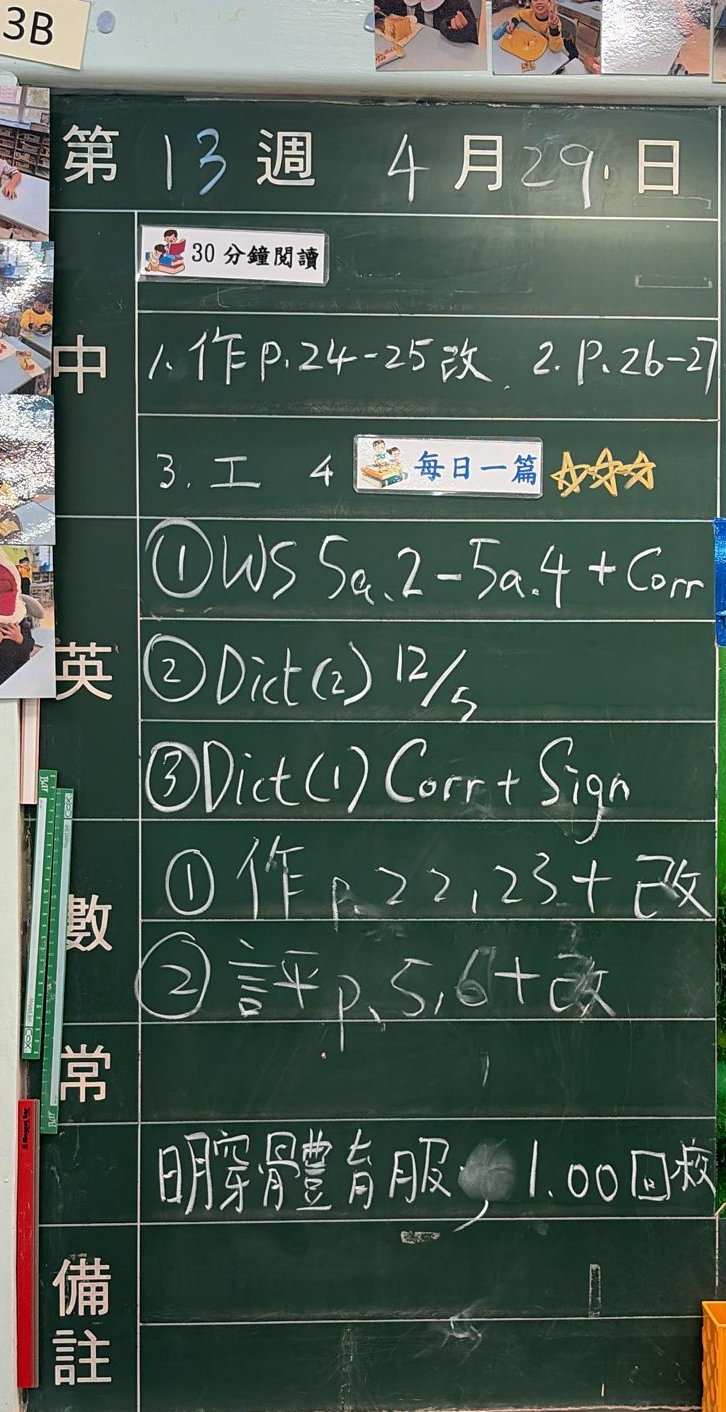 3B
第 13 週 4 月 29 日
30 分鐘閱讀
中
1. 作 p.24-25 改 2. P.26-27
3. 工 4 每日一篇
英
① WS 5a.2-5a.4 + Corr
② Dict(2) 12/5
③ Dict(1) Corr + Sign
數
① 作 p.22,23 + 改
② 評 p.5,6 + 改
常
明穿體育服, 1.00 回校
備註